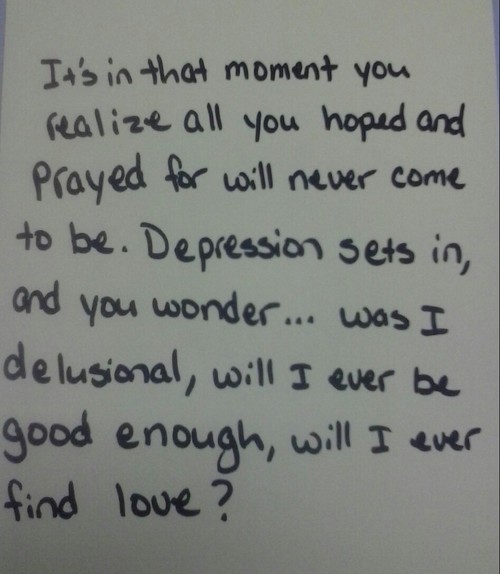 It's in that moment you
realize all you hoped and
prayed for will never come
to be. Depression sets in,
and you wonder... was I
delusional, will I ever be
good enough, will I ever
find love?